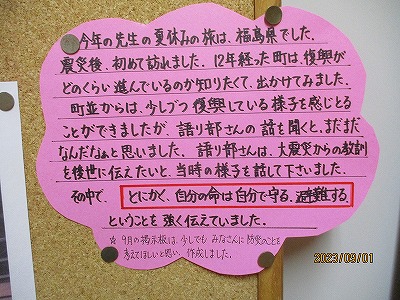 今年の先生の夏休みの旅は、福島県でした。
震災後、初めて訪れました。12年経った町は、復興が
どのくらい進んでいるのか知りたくて、出かけてみました。
町並からは、少しづつ復興している様子を感じとる
ことができましたが、語り部さんの話を聞くと、まだまだ
なんだなぁと思いました。語り部さんは、大震災からの教訓
を後世に伝えたいと、当時の様子を話して下さいました。
その中で、とにかく、自分の命は自分で守る。避難する。
ということを強く伝えていました。
☆9月の掲示板は、少しでもみなさんに防災のことを
考えてほしいと思い、作成しました。
2023/09/01